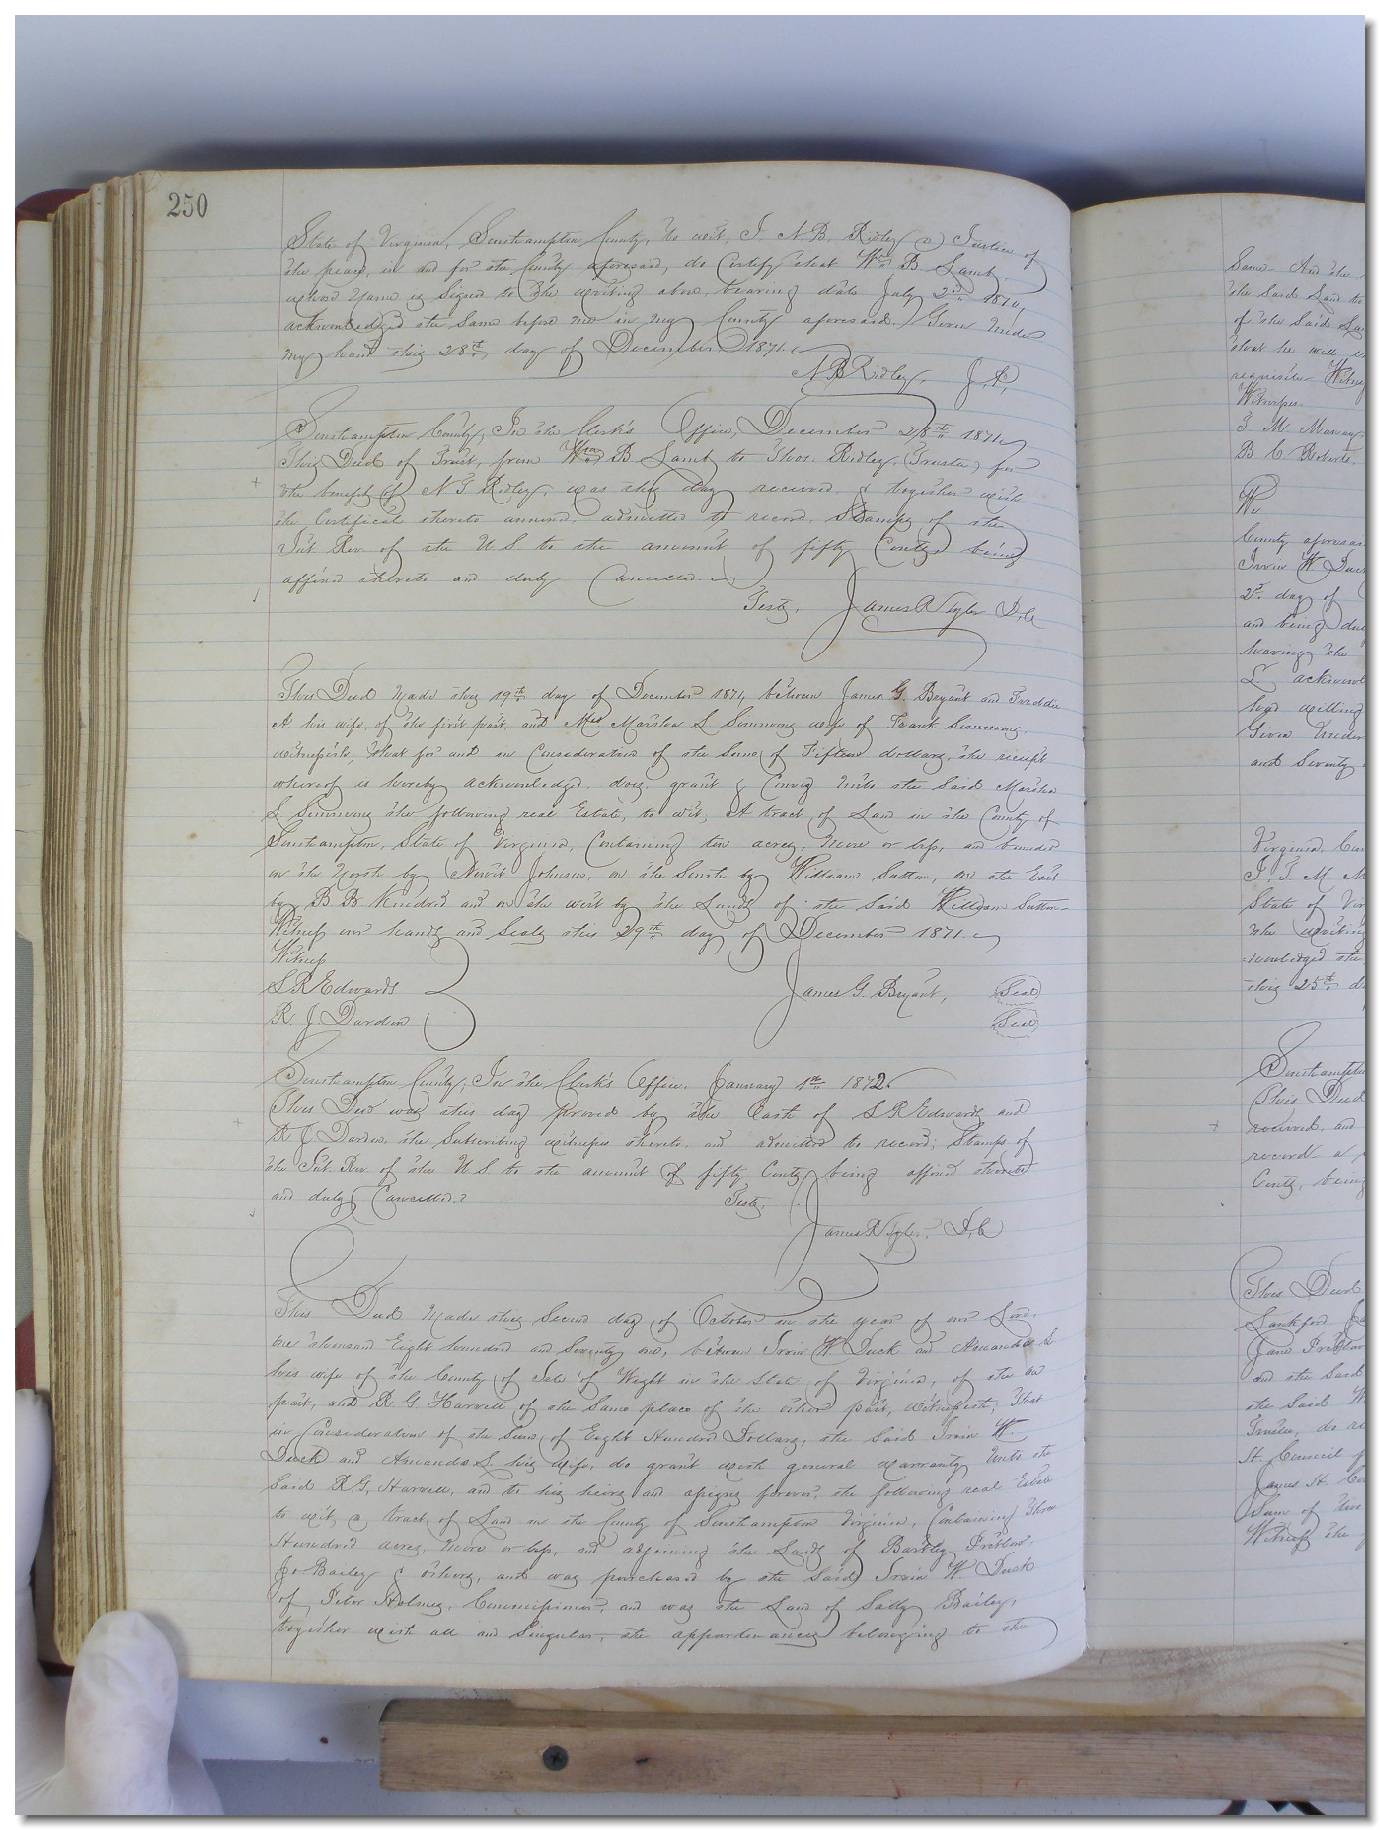 250
State of Virginia, Southampton County, to wit, I N B. Ridley a Justice of
the peace, in and for the County aforesaid, do Certify that Wm B Lamb,
whose Name is Signed to the writing above, bearing date July 2nd 1870,
acknowledged the Same before me in my County aforesaid. Given Under
my hand this 28th day of December 1871.
N B Ridley, J.P.
Southampton County, In the Clerk's Office, December 28th 1871
This Deed of Trust, from Wm B Lamb to Thos. Ridley, (Trustee) for
the benefit of N G Ridley, was this day received & together with
the Certificate thereto annexed, admitted to record. Stamps of the
Int. Rev. of the U.S. to the amount of fifty Cents being
affixed thereto and duly Cancelled.
Teste, James R Tyler D.C.
This Deed Made this 19th day of December 1871, between James G. Bryant and
A his wife, of the first part, and Mrs Marsha L Simmons wife of Frank Simmons,
witnesseth, that for and in Consideration of the Sum of Fifteen dollars, the receipt
whereof is hereby acknowledged, does grant & Convey Unto the Said Marsha
L Simmons the following real Estate, to wit, A tract of Land in the County of
Southampton, State of Virginia, Containing ten acres, More or less, and bounded
on the North by Johnson, on the South by William Sutton, on the East
by B B Kindred and on the west by the Lands of the Said William Sutton
Witness our hands and Seals this 29th day of December 1871.
Witness
S R Edwards James G. Bryant, (Seal)
R. J. Darden (Seal)
Southampton County, In the Clerk's Office, January 1st 1872.
This Deed was this day proved by the Oath of S R Edwards and
R J Darden, the Subscribing witnesses thereto, and admitted to record; Stamps of
the Int. Rev. of the U S to the amount of fifty Cents being affixed thereto
and duly Cancelled. Teste,
James R Tyler, D.C.
This Deed Made this Second day of October in the year of our Lord
one thousand Eight hundred and Seventy one, between Irvin W Duck and Amanda S
his wife of the County of Isle of Wight in the State of Virginia, of the one
part, and R. G. Harrell of the Same place of the other part, witnesseth, That
in Consideration of the Sum of Eight Hundred Dollars, the Said Irvin W.
Duck and Amanda S. his wife, do grant with general warranty Unto the
Said R G, Harrell, and to his heirs and assigns forever, the following real Estate
to wit, a tract of Land in the County of Southampton Virginia, Containing Three
Hundred acres, More or less, and adjoining the Lands of Bartley Pretlow,
Jo Bailey & others, and was purchased by the Said Irvin W Duck
of Peter Holmes, Commissioner, and was the Land of Sally Bailey,
together with all and Singular, the appurtenances belonging to the
Same. And the
the Said Land
of the Said
that he will
requisite. Witness
Witnesses.
J. M.
B C Roberts.
County aforesaid
Irvin W Duck
2nd day of
and being
having the
acknowl
had willing
Given Under
and Seventy
Virginia,
I. J M
State of Vir
the writing
-knowledged the
this 25th d
Southampton
This Deed
received, and
record
Cents, being
This Deed
Lankford
Jane Pretlow
and the Said
the Said W
Trustee, do
H. Council
James H.
Sum of
Witness the